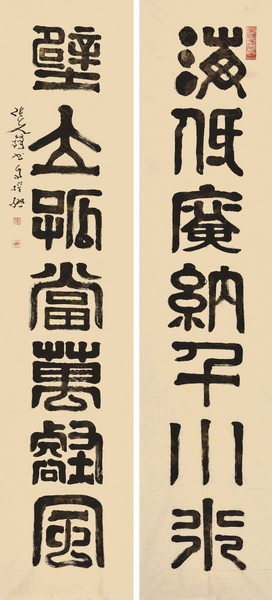 海低處納千川水
壁立孤當萬壑風